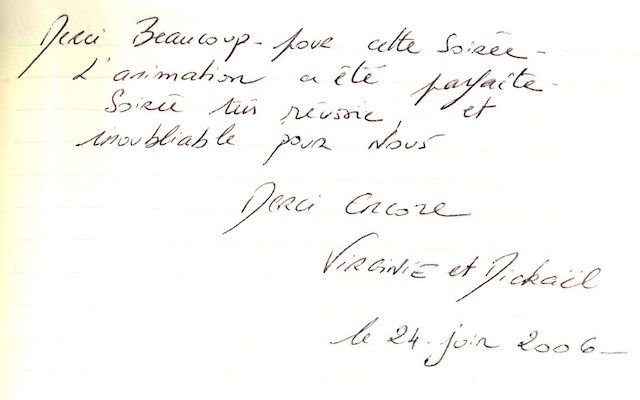 Merci Beaucoup - pour cette Soirée -
L'animation a été parfaite -
Soirée très réussie, et
inoubliable pour Nous
Merci Encore
Virginie et Mickaël
le 24 juin 2006 -